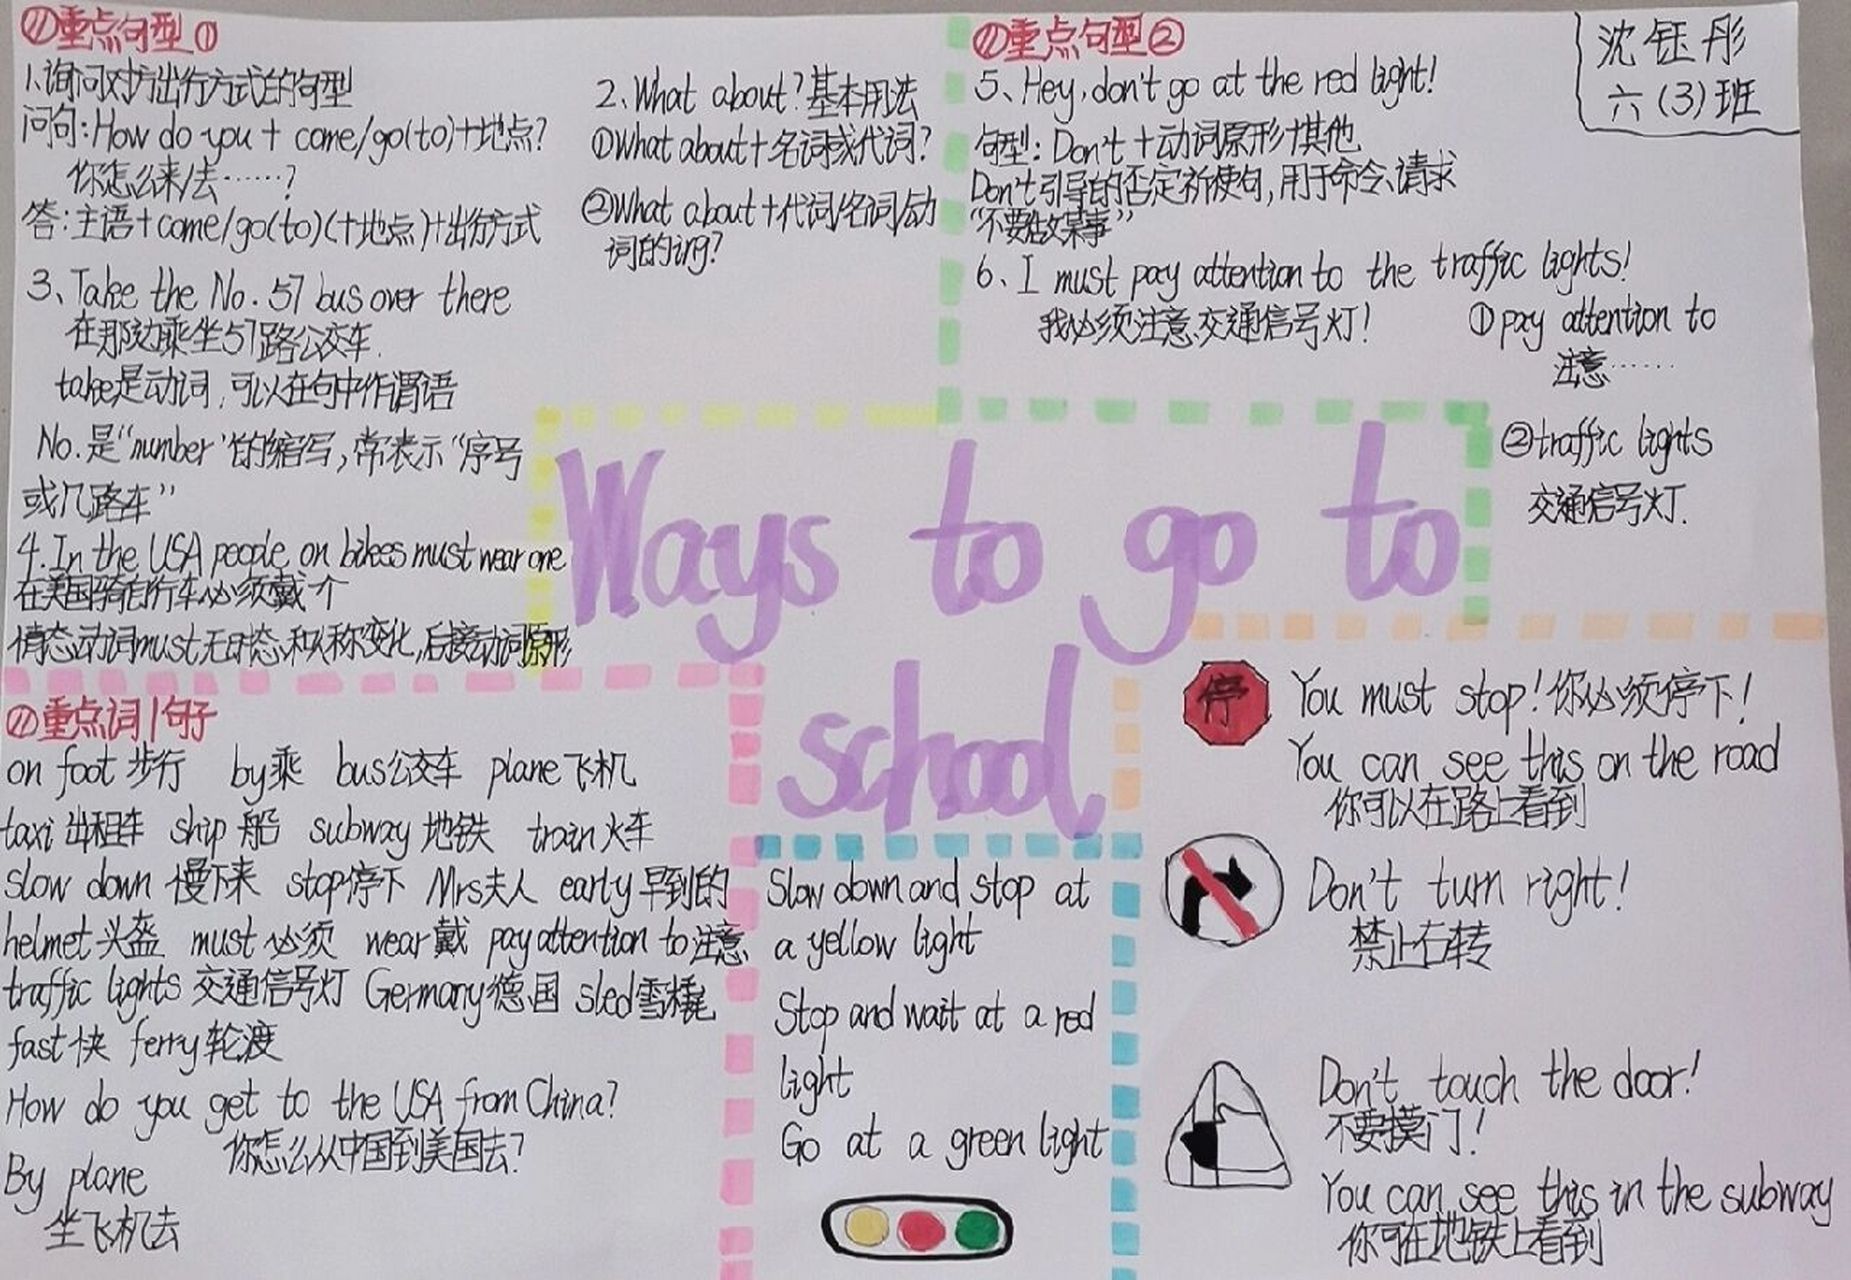 重点句型①
1、询问对方出行方式的句型
问句:How do you + come/go(to)+地点?
你怎么来/去……?
答:主语+come/go(to)(+地点)+出行方式
2、What about?基本用法
①What about+名词或代词?
②What about+代词/名词/动
词的ing?
3、Take the No. 57 bus over there
在那边乘坐57路公交车.
take是动词,可以在句中作谓语
No.是“number”的缩写,常表示“序号
或几路车”
4.In the USA people on bikes must wear one
在美国骑自行车必须戴一个
情态动词must无时态和人称变化,后接动词原形
重点句型②
5、Hey,don't go at the red light!
句型:Don't+动词原形+其他
Don't引导的否定祈使句,用于命令、请求
“不要做某事”
6、I must pay attention to the traffic lights!
我必须注意交通信号灯!
①pay attention to
注意……
②traffic lights
交通信号灯.
沈钰彤
六(3)班
Ways to go to
school
重点词/句子
on foot 步行 by乘 bus公交车 plane飞机
taxi 出租车 ship 船 subway 地铁 train火车
slow down 慢下来 stop停下 Mrs夫人 early早到的
helmet头盔 must 必须 wear戴 pay attention to注意
traffic lights 交通信号灯 Germany德国 sled雪橇
fast快 ferry轮渡
How do you get to the USA from China?
你怎么从中国到美国去?
By plane
坐飞机去
Slow down and stop at
a yellow light
Stop and wait at a red
light
Go at a green light
停
You must stop!你必须停下!
You can see this on the road
你可以在路上看到
Don't turn right!
禁止右转
Don't touch the door!
不要摸门!
You can see this in the subway
你可在地铁上看到